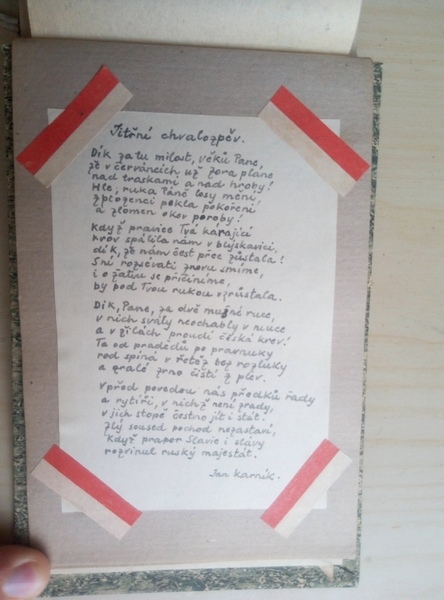 Jitřní chvalozpěv.
Dík za tu milost, věků Pane,
že v červáncích už zora plane
nad troskami a nad hroby!
Hle, ruka Páně losy mění,
zplozenci pekla pokořeni
a zlomen okov poroby!
Když pravice Tvá kárající
krov spálila nám v blýskavici,
dík, že nám čest přec zůstala!
Sní rozsévati znovu smíme,
i o žatvu se přičiníme,
by pod Tvou rukou vzrůstala.
Dík, Pane, za dvě mužné ruce,
v nich svaly neochably v muce
a v žilách proudí česká krev!
Ta od pradědů po pravnuky
rod spíná v řetěz bez rozluky
a zralé zrno čistí z plev.
Vpřed povedou nás předků řady
a rytíři, v nichž není zrady,
v jich stopě čestno jít i stát.
Zlý soused pochod nezastaví,
když prapor Slavie i slávy
rozvinul ruský majestát.
Jan Karník.